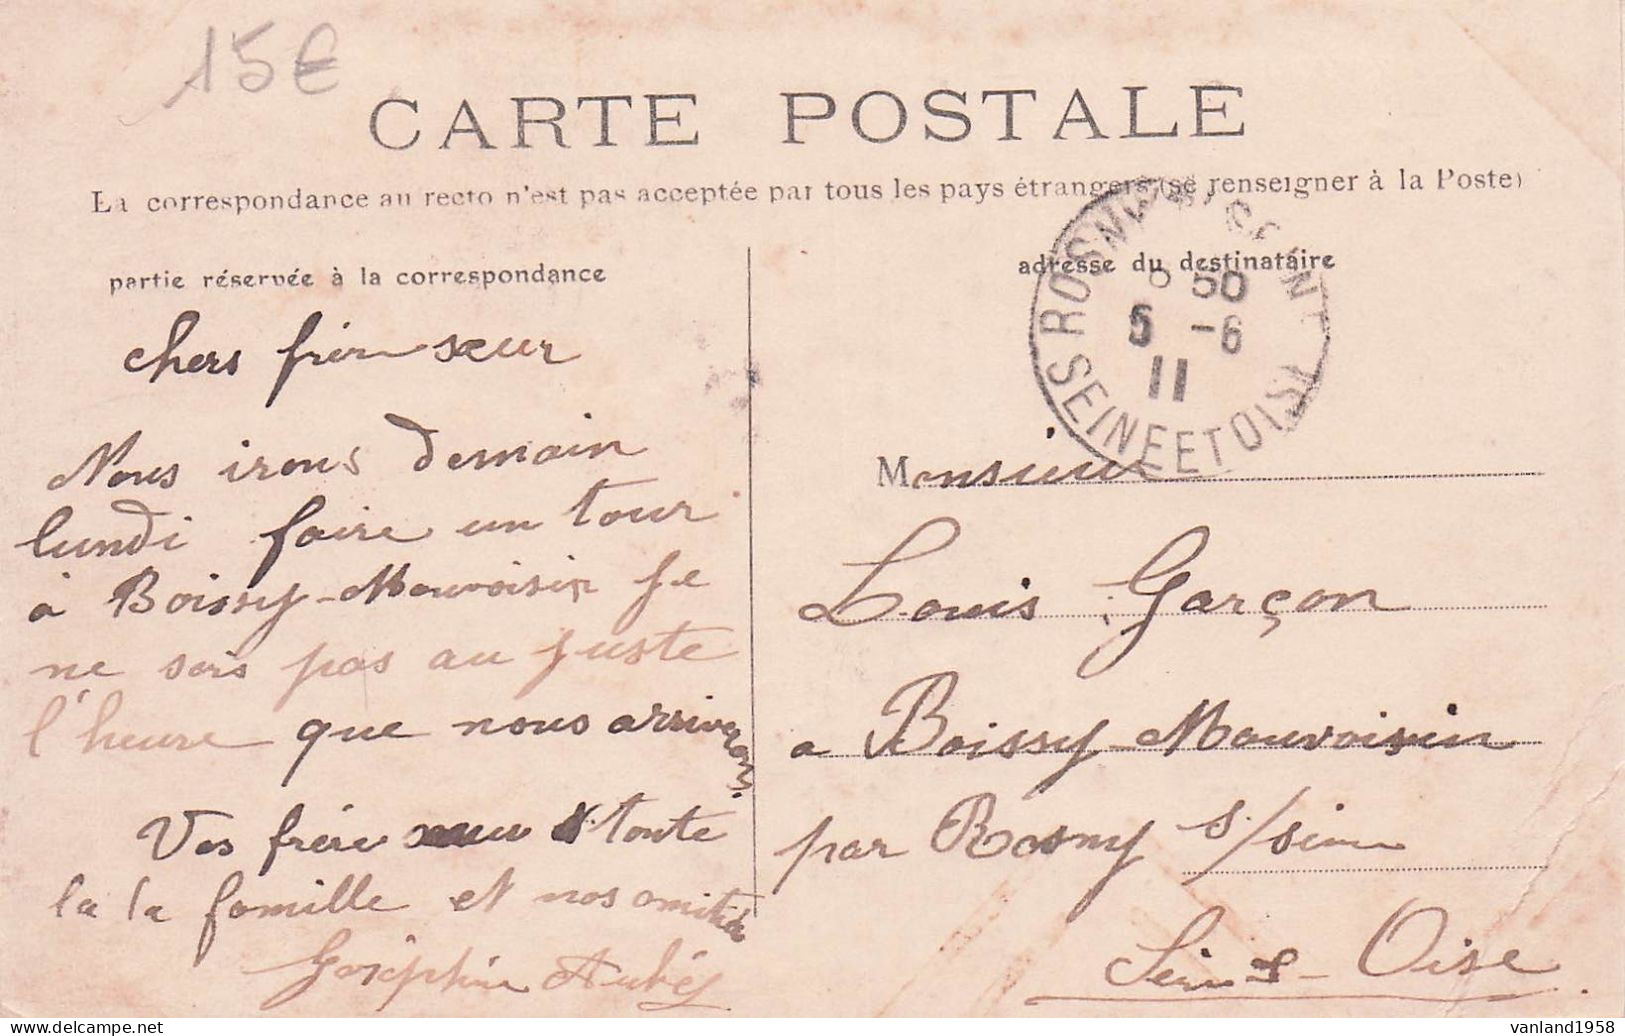 15€
CARTE POSTALE
La correspondance au recto n'est pas acceptée par tous les pays étrangers (se renseigner à la Poste)
partie réservée à la correspondance
chers frère sœur
Nous irons demain
lundi faire un tour
à Boissy-Mauvoisin je
ne sais pas au juste
l'heure que nous arriverons
Vos frère sœur toute
la la famille et nos amitiés
Joséphine
adresse du destinataire
ROSNY
50
5 -6
11
SEINE ET OISE
Monsieur
Louis Garçon
a Boissy-Mauvoisin
par Rosny s/seine
Seine-Oise
vanland1958